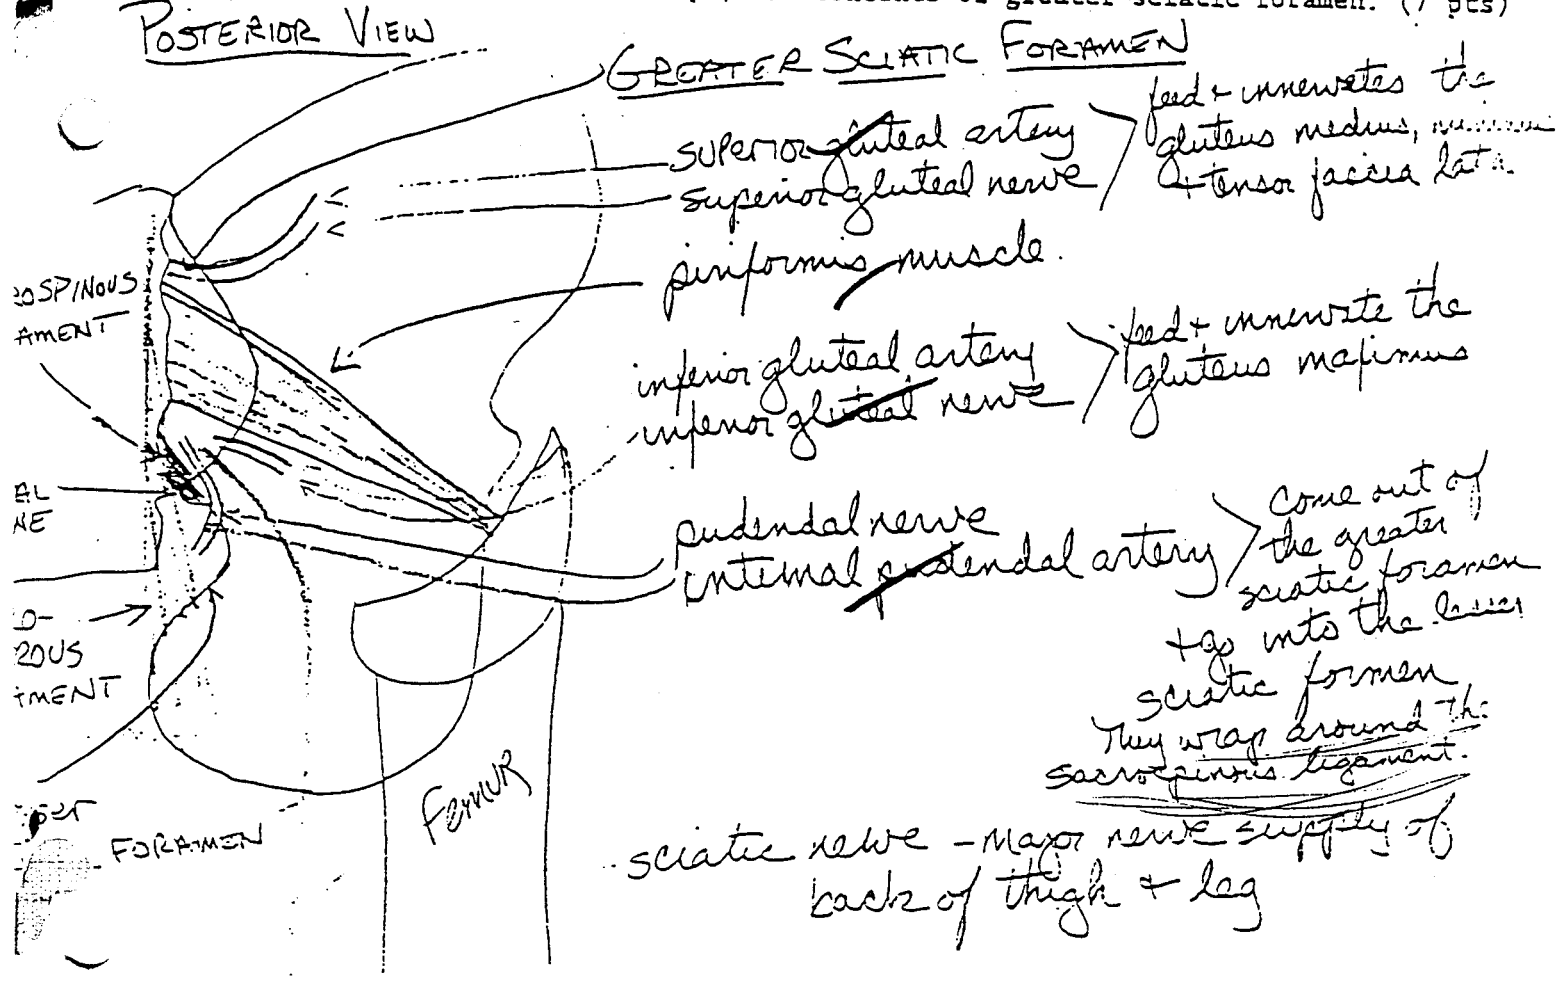 greater sciatic foramen. (7 pts)
POSTERIOR VIEW
GREATER SCIATIC FORAMEN
superior gluteal artery
superior gluteal nerve
feed + innervates the
gluteus medius,
+ tensor faccia lata.
piriformis muscle.
OSPINOUS
AMENT
inferior gluteal artery
inferior gluteal nerve
feed + innervate the
gluteus maximus
AL
NE
pudendal nerve
internal pudendal artery
come out of
the greater
sciatic foramen
+ go into the lesser
sciatic formen
They wrap around the
sacrospinous ligament.
O-
ROUS
AMENT
FEMUR
FORAMEN
sciatic nerve - major nerve supply of
back of thigh + leg